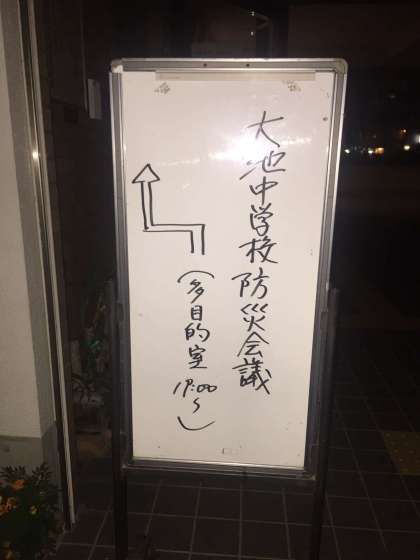 大池中学校防災会議
(多目的室 19:00〜)